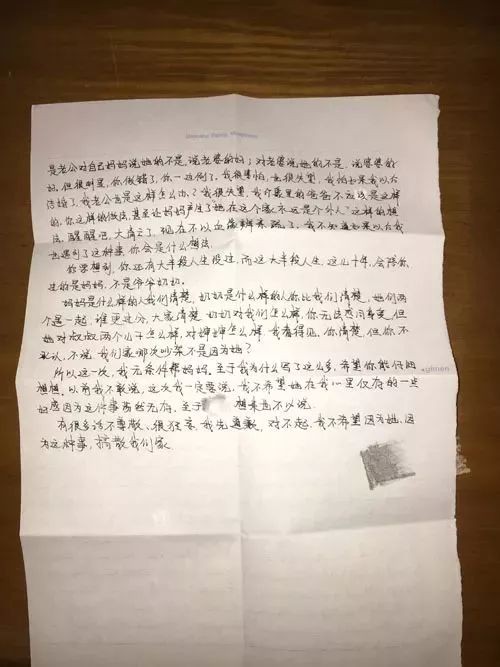 是老公对自己妈妈说她的不是,说老婆的好;对老婆说她的不是,说婆婆的
好,但很明显,你做错了,你一边倒了,我很害怕,也很失望,我怕如果我以后
结婚了,我老公也是这样怎么办?我很失望,我印象里的爸爸不应该是这样
的,你这样的做法,甚至让妈妈产生了她在这个家永远是个外人"这样的想
法,醒醒吧,大清亡了,现在不以血缘辨亲疏了,我不知道如果以后我
也遇到了这种事,你会是什么想法.
你要想到,你还有大半段人生没过,而这大半段人生,这几十年,会陪你
走的是妈妈,不是爷爷奶奶.
妈妈是什么样的人我们清楚,奶奶是什么样的人你比我们清楚,她们两
个遇一起,谁更过分,大家清楚,奶奶对我们怎么样,你无法感同身受,但
她对叔叔两个儿子怎么样,对婶婶怎么样,我看得见,你清楚,但你不
承认,不说,我们家哪次吵架不是因为她?
所以这一次,我无条件帮妈妈,至于我为什么写了这么多,希望你能仔细
想想,以前我不敢说,这次我一定要说,我不希望她在我心里仅有的一点
好感因为这件事荡然无存,至于 想来也不必说.
有很多话不尊敬,很狂妄,我先道歉,对不起,我不希望因为她,因
为这种事,搞散我们家.